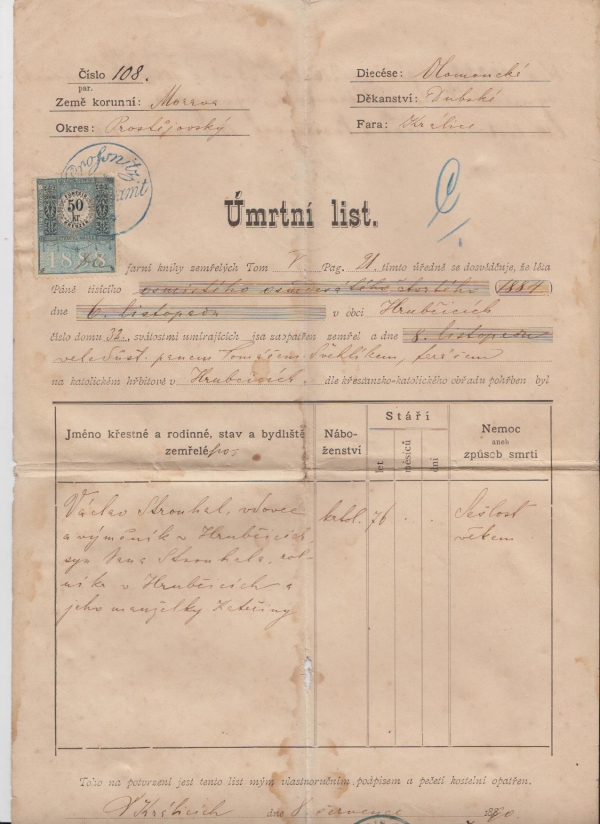 Číslo 108.
par.
Země korunní: Morava
Okres: Prostějovský
Diecése: Olomoucké
Děkanství: Dubské
Fara: Králice
50
kr.
1888
Úmrtní list.
farní knihy zemřelých Tom V. Pag. 21. tímto úředně se dosvědčuje, že léta
Páně tisícího osmistého osmdesátého čtvrtého (1884)
dne 6. listopadu v obci Hrubčicích
číslo domu 32., svátostmi umírajících jsa zaopatřen zemřel a dne 8. listopadu
veledůst. panem Tomášem farářem
na katolickém hřbitově v Hrubčicích. dle křestansko-katolického obřadu pohřben byl
Jméno křestné a rodinné, stav a bydliště
zemřelého
Nábo-
ženství
Stáří
let
měsíců
dní
Nemoc
aneb
způsob smrti
Václav Strouhal, vdovec
a výměnník v Hrubčicích,
syn Jana Strouhala, rol-
níka v Hrubčicích a
jeho manželky Kateřiny
katol.
76
Sešlost
věkem
Toho na potvrzení jest tento list mým vlastnoručním podpisem a pečetí kostelní opatřen.
V Králicích dne 8. července 1890.